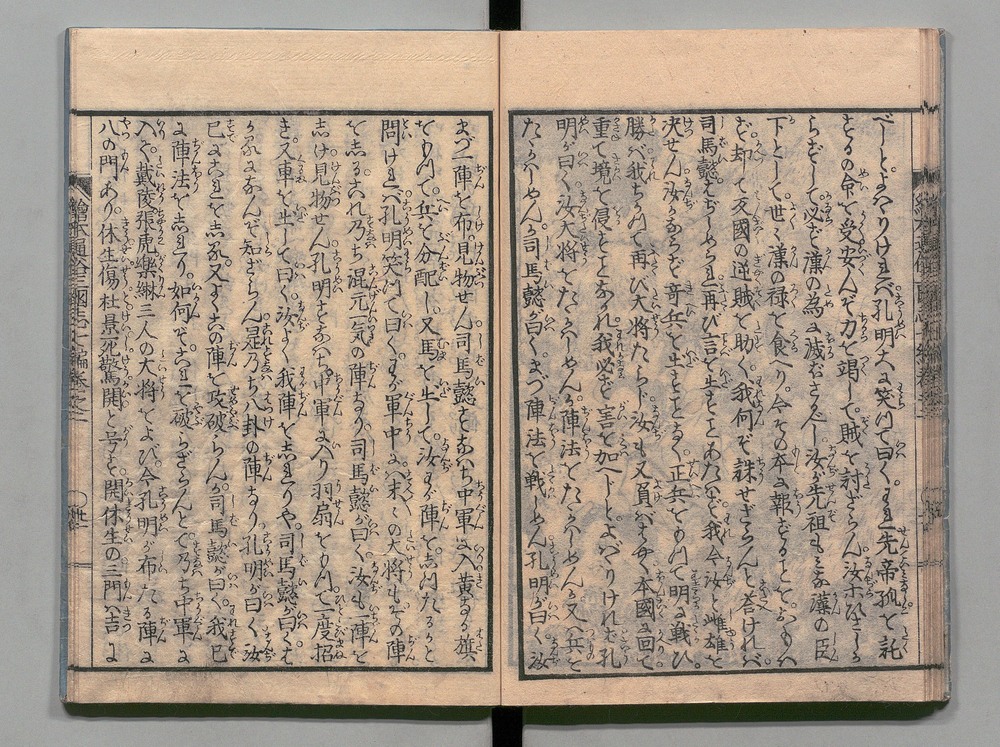 べしとよバりけれバ孔明大に笑つて曰くわれ先帝孤を託
するの命を受安んぞ力を竭して賊を討ざらん汝ホ
らずして必ず漢の為に滅されべし汝が先祖もミな漢の臣
下として世〻漢の禄を食へり今その本に報ずることをおもハ
ず却て反國の逆賊を助く我何ぞ誅せざらんと答けれバ
司馬懿はぢらつて再び言を出すことあたハず我今汝と雌雄を
决せん汝かならず奇兵を出すことなく正兵をもつて明に戦ひ
勝バ我ちかつて再び大将たらじ汝も又負なバ本國に回て
重て境を侵ことなかれ我必ず害を加へじとよバりけれバ孔
明が曰く汝大将をたゝかハしめんか陣法をたゝかハしめんか又ハ兵を
たゝかハしめんか司馬懿が曰くまづ陣法を戦しめん孔明が曰く汝
まづ一陣を布け見物せん司馬懿すなハち中軍に入黄なる旗
をもつて兵を分配し又馬を出して汝わが陣をしつたるかと
問けれバ孔明笑つて曰くわが軍中にハ末〻の大将もその陣
をしるこれ乃ち混元一気の陣なり司馬懿が曰く汝も陣を
しけ見物せん孔明すなハち中軍に入り羽扇をもつて一度招
き又車を出して曰く汝よく我陣をしれりや司馬懿が曰くか
ゝるになんぞ知ざらん是乃ち八卦の陣なり孔明が曰く汝
已にこれをしる又よくこの陣を攻破らんか司馬懿が曰く我已
に陣法をしれり如何ぞこれを破らざらんとて乃ち中軍に
入て戴陵張虎樂綝三人の大将をよび今孔明が布たる陣に
八の門あり休生傷杜景死驚開と号す開休生の三門ハ吉に
繪本通俗三國志七編巻之二